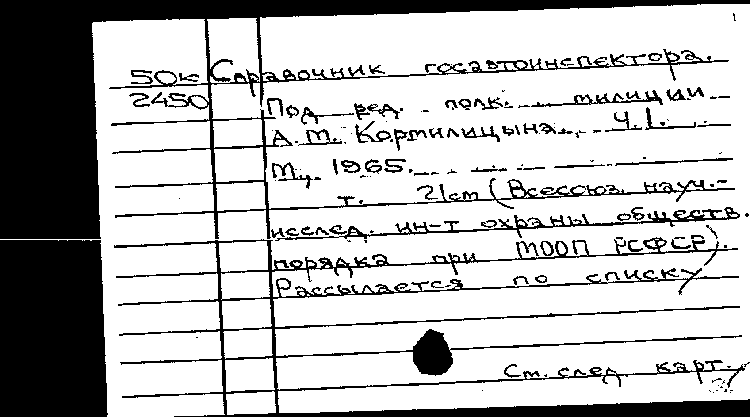 1
50к Справочник госавтоинспектора.
2450 Под ред. полк. милиции
А.М. Кормилицына, Ч.1.
М., 1965.
т. 21см (Всесоюз. науч.-
исслед. ин-т охраны обществ.
порядка при МООП РСФСР).
Рассылается по списку
См. след. карт.